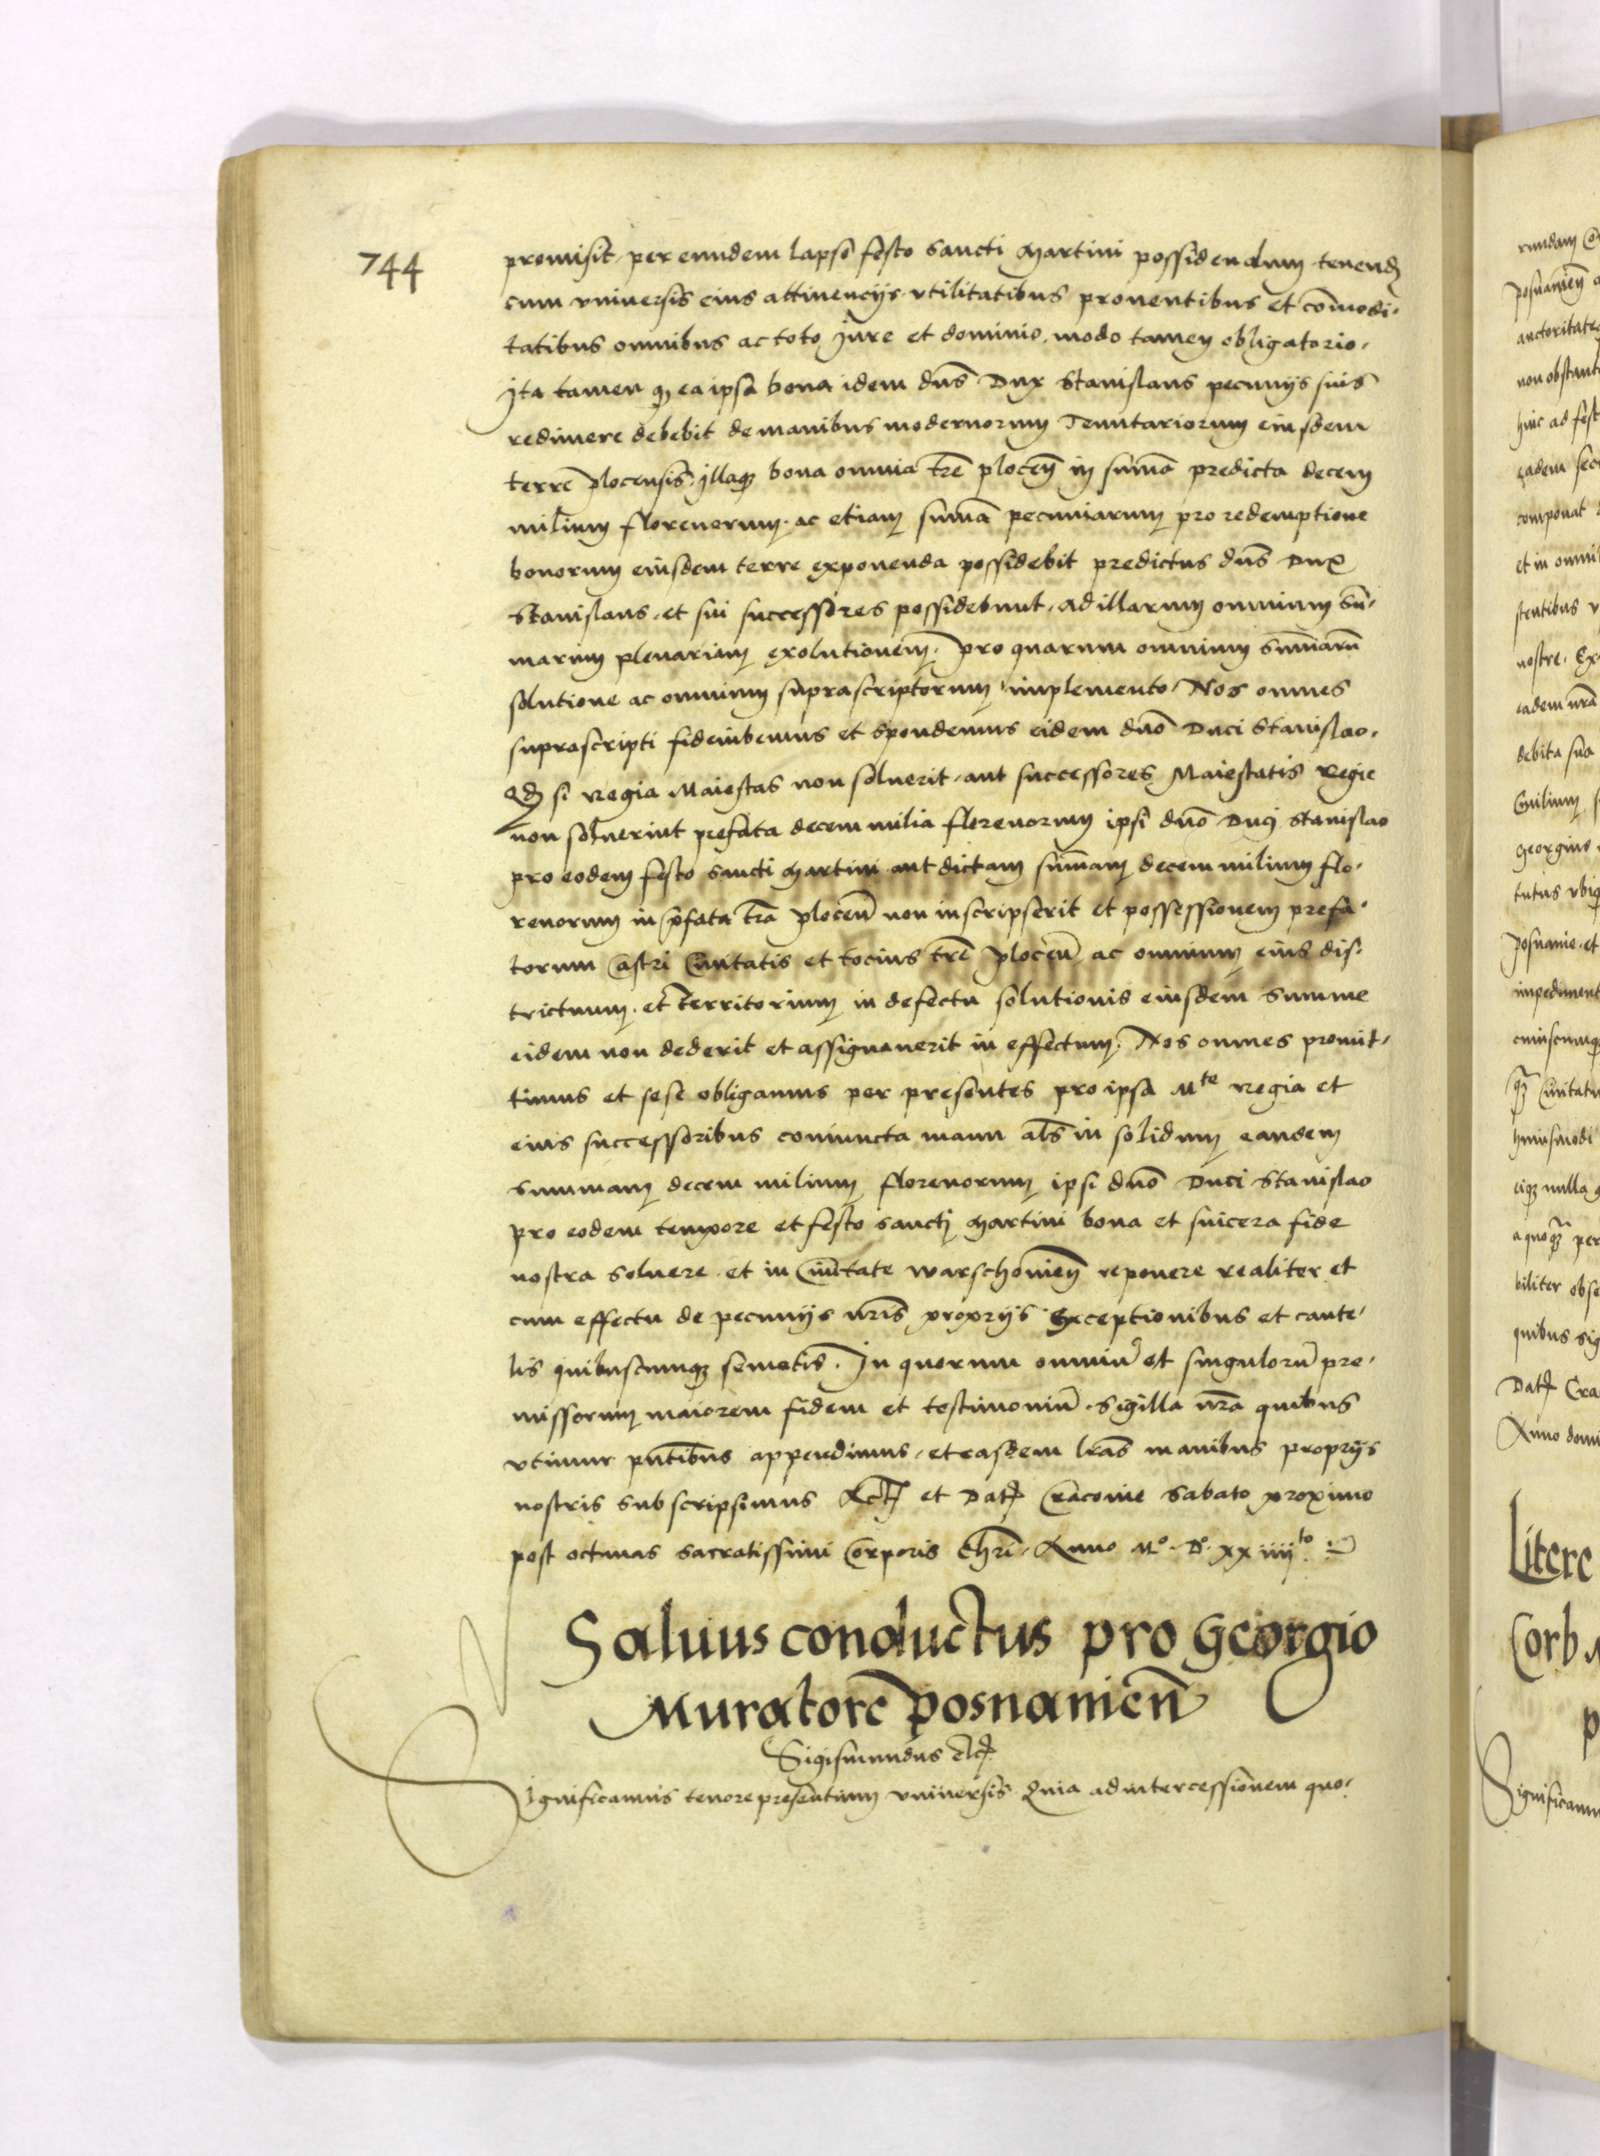 744
promisit per eundem lapso festo sancti Martini possidendum tenend
cum vniuersis eius attinencijs vtilitatibus prouentibus et comodi-
tatibus omnibus ac toto Jure et dominio, modo tamen obligatorio.
Jta tamen q ea ipsa bona idem dns Dux Stanislaus pecunijs suis
redimere debebit de manibus modernorum Tenutariorum eiusdem
terre plocensis, illaq bona omnia tre plocen in suma predicta decem
milium florenorum, ac etiam suma pecuniarum pro redemptione
bonorum eiusdem terre exponenda possidebit predictus dns Dux
Stanislaus, et sui successores possidebunt, ad illarum omnium sum-
marum plenariam exolutionem. Pro quarum omnium sumarum
solutione ac omnium suprascriptorum implemento, Nos omnes
suprascripti fideiubemus et spondemus eidem dno Duci Stanislao,
Qd si Regia Maiestas non soluerit, aut successores Maiestatis Regie
non soluerint prefata decem milia florenorum ipsi dno Duci Stanislao
pro eodem festo sancti Martini aut dictam sumam decem milium flo-
renorum in pfata tra plocen non inscripserit et possessionem prefa-
torum Castri Ciuitatis et tocius tre plocen ac omnium eius dis-
trictuum, et territorium in defectu solutionis eiusdem summe
eidem non dederit et assignauerit in effectum. Nos omnes promit-
timus et sese obligamus per presentes pro ipsa Mte Regia et
eius successoribus coniuncta manu als in solidum eandem
summam decem milium florenorum ipsi dno Duci Stanislao
pro eodem tempore et festo sancti Martini bona et sincera fide
nostra soluere et in Ciuitate warschouien reponere realiter et
cum effectu de pecunijs nris proprijs Exceptionibus et caute-
lis quibuscumq semotis. In quorum omniu et singuloru pre-
missorum maiorem fidem et testimoniu sigilla nra quibus
vtimur pntibus appendimus, et easdem lras manibus proprijs
nostris subscripsimus Act et Dat Cracouie Sabato proximo
post octauas sacratissimi Corporis Chri, Anno Mo Do xxiiijto
Saluus conductus pro Georgio
Muratore posnanien
Sigismundus etc
Significamus tenore presentium vniuersis Quia ad intercessionem quo-
rundam
posnanien
auctoritate
non obstant
huic ad fest
eadem
componat
et in omni
stentibus
nostre. Ex
eadem nra
debita sua
Ciuilium
Georgius
tutus vbiq
Posnanie, et
impediment
cuiuscumq
Ciuitat
huiusmodi
eiq nulla
a quoq per
biliter obse
quibus sig
Dat Cra
Anno domi
Litere
Corb
p
Significam